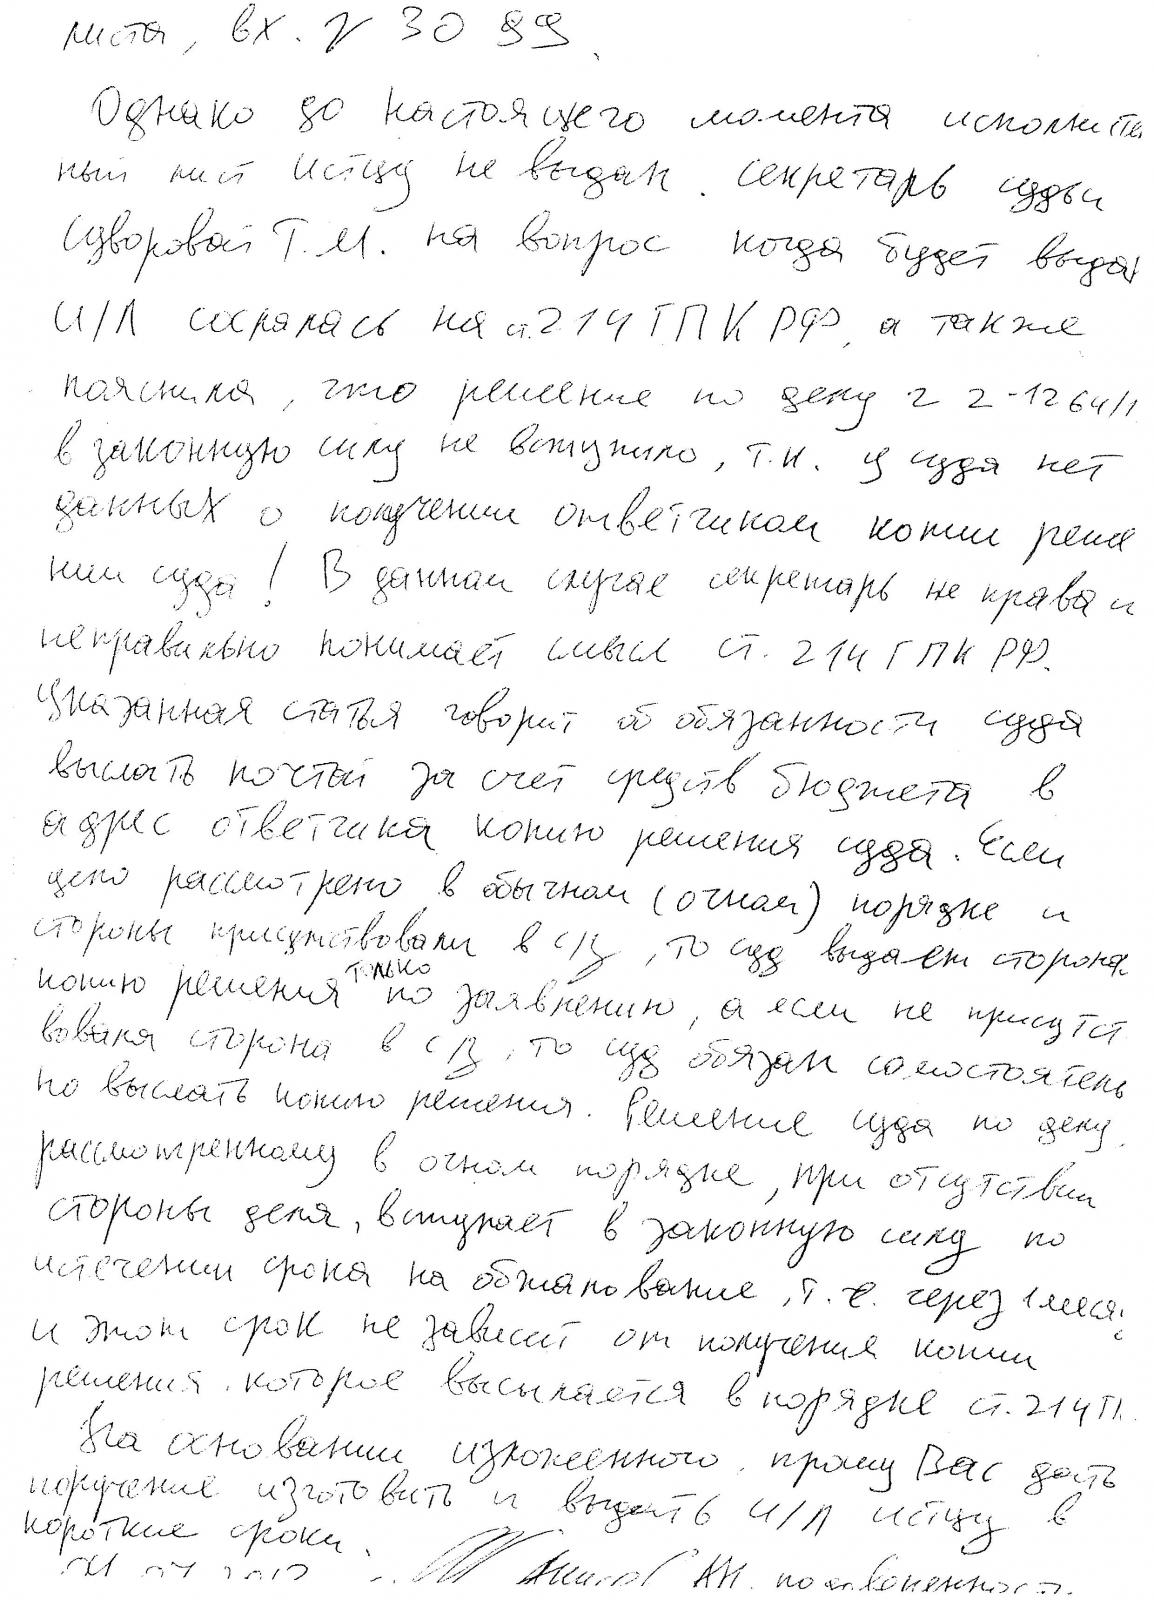 листа, вх. № 3099.
Однако до настоящего момента исполните
ный лист Истцу не выдан. Секретарь судьи
Суворовой Т.М. на вопрос когда будет выдан
И/Л сослалась на ст. 214 ГПК РФ, а также
пояснила, что решение по делу № 2-1264/1
в законную силу не вступило, т.к. у суда нет
данных о получении ответчиком копии реше
нии суда! В данном случае секретарь не права и
неправильно понимает смысл ст. 214 ГПК РФ.
Указанная статья говорит об обязанности суда
выслать почтой за счет средств бюджета в
адрес ответчика копию решения суда. Если
дело рассмотрено в обычном (очном) порядке и
стороны присутствовали в с/з, то суд выдает сторонам
копию решения только по заявлению, а если не присутст
вовала сторона в с/з, то суд обязан самостоятель
но выслать копию решения. Решение суда по делу,
рассмотренному в очном порядке, при отсутствии
стороны дела, вступает в законную силу по
истечении срока на обжалование, т.е. через 1 меся
и этот срок не зависит от получения копии
решения, которое высылается в порядке ст. 214 ГП
На основании изложенного, прошу Вас дать
поручение изготовить и выдать И/Л истцу в
короткие сроки.
А.Н. по доверенности.